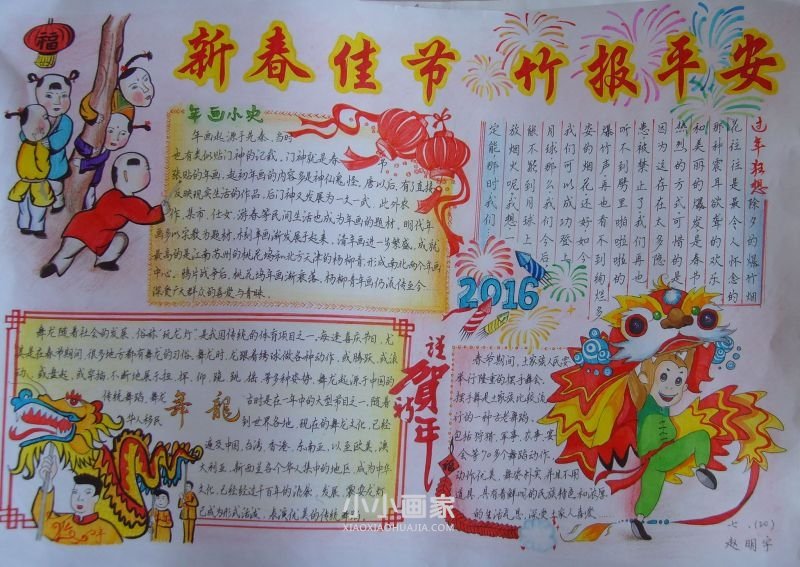 福
新春佳节 竹报平安
年画小史
年画起源于先秦,当时
也有类似贴门神的记载,门神就是春节
张贴的年画,起初年画的内容多是神仙鬼怪,唐以后,有了直接
反映现实生活的作品,后门神又发展为一文一武,此外农
作,集市,仕女,游春等民间生活也成为年画的题材,明代年
画多以宗教为题材,木刻年画渐发展于起来,清年画进一步繁盛,成就
最高的是江南苏州的桃花坞和北方天津的杨柳青,形成南北两个年画
中心。鸦片战争后,桃花坞年画渐衰落,杨柳青年画仍流传至今
深受广大群众的喜爱与青睐。
过年狂想
除夕的爆竹烟
花往往是最令人怀念的
那种震耳欲聋的欢乐
和美丽的爆发是春节
热烈的方式可惜的是
因为这存在太多隐
患被禁止了我们再也
听不到劈里啪啦的
爆竹声再也看不到绚烂多
姿的烟花还好如今
我们可以成功登上
月球那么我们今后
能不能到月球上
放烟火呢我想
定能那时我们
2016
谨
贺新年
舞龙随着社会的发展,俗称"玩龙灯",是我国传统的体育项目之一,每逢喜庆节日,尤
其是在春节期间,很多地方都有舞龙的习俗,舞龙时,龙跟着绣球做各种动作,或腾跃,或滚
动、或盘起,或穿插,不断地展示扭、挥、仰、跪、跳、摇、等多种姿势,舞龙起源于中国的
传统舞蹈,舞龙
舞龙
古时是在一年中的大型节日之一,随着
华人移民
到世界各地,现在的舞龙文化,已经
遍及中国,台湾,香港,东南亚,以至欧美,澳
大利亚,新西兰各个华人集中的地区,成为中华
文化,已经经过千百年的流传、发展,
已成为形式活泼、表演优美的传统
春节期间,土家族人民要
举行隆重的摆手舞会,
摆手舞是土家族比较流
行的一种古老舞蹈,
包括狩猎、军事、农事、宴
会等70多个舞蹈动作,
动作优美,舞姿朴实,并且不用
道具,具有着鲜明的民族特色和浓厚
的生活气息,深受土家人喜爱
福
小小画家
XIAOXIAOHUAJIA.COM
七.(20)
赵明宇